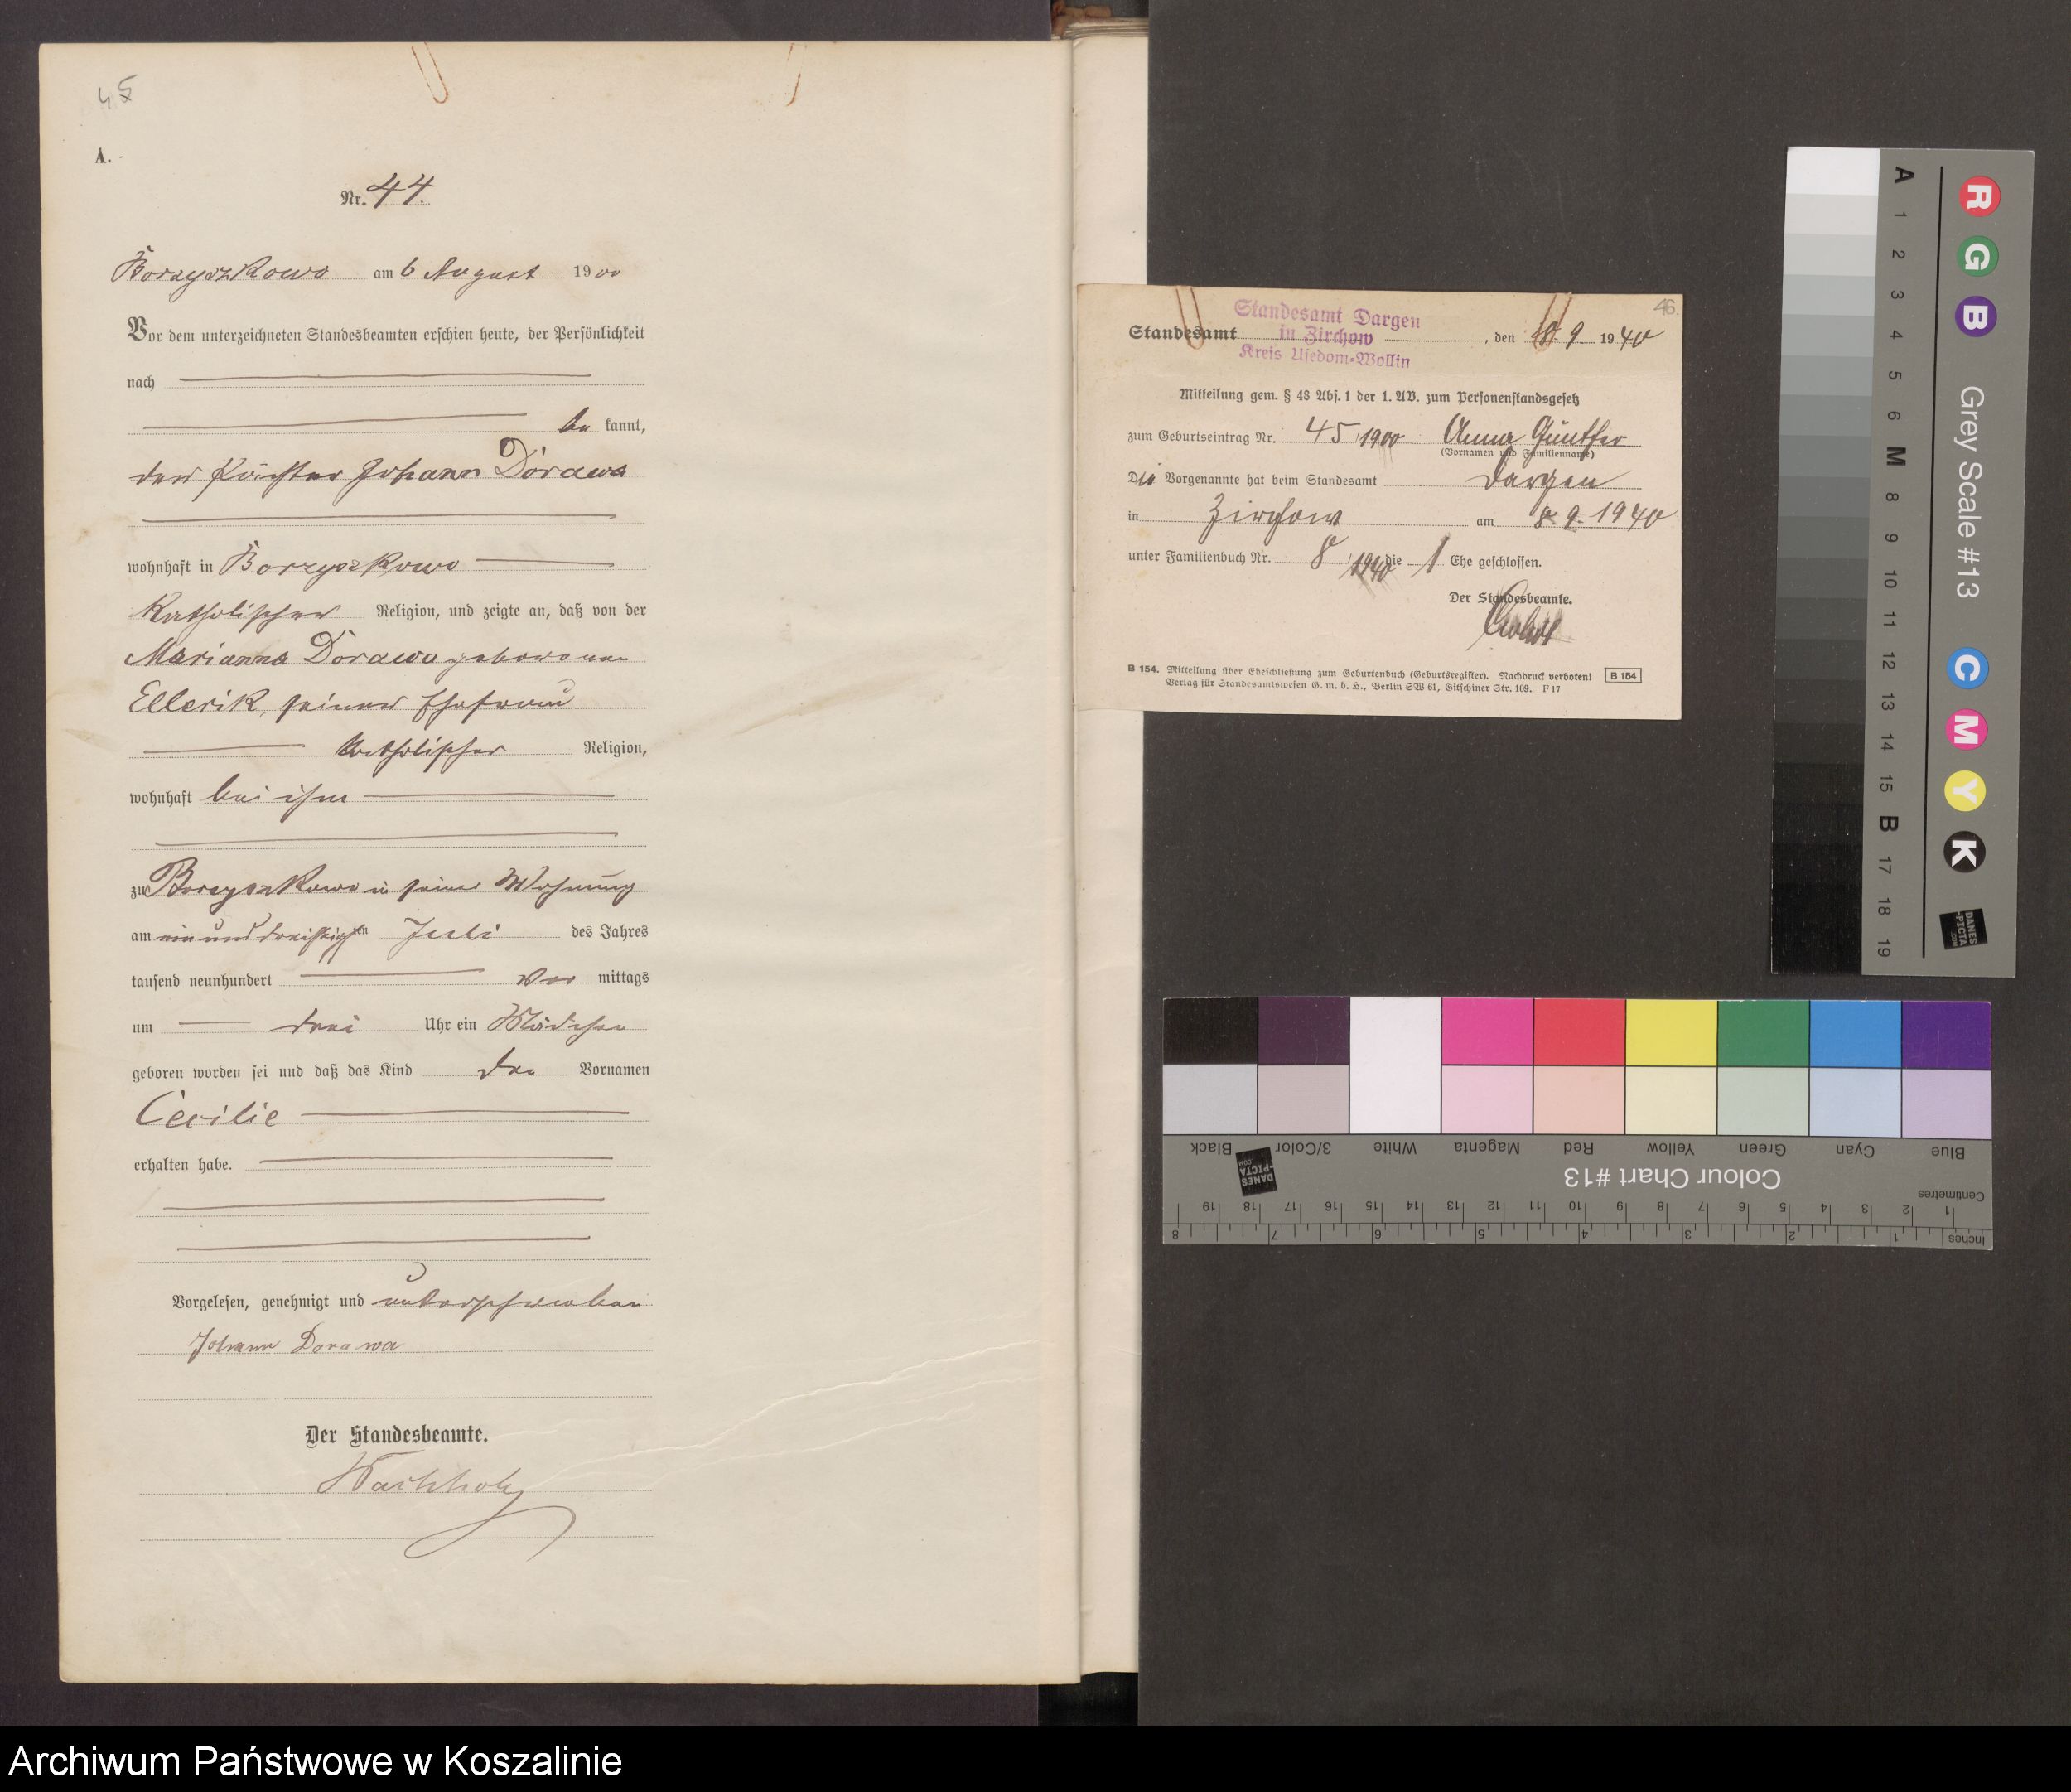 45
A.
Nr. 44.
Borzyszkowo am 6 August 1900
Vor dem unterzeichneten Standesbeamten erschien heute, der Persönlichkeit
nach
be kannt,
der Johann Dorawa
wohnhaft in Borzyszkowo
katholischer Religion, und zeigte an, daß von der
Marianna Dorawa geborenen
Ellerik, seiner Ehefrau
katholischer Religion,
wohnhaft bei ihm
zu Borzyszkowo in seiner Wohnung
am ein und dreißigsten Juli des Jahres
tausend neunhundert Vor mittags
um drei Uhr ein Mädchen
geboren worden sei und daß das Kind den Vornamen
Cecilie
erhalten habe.
Vorgelesen, genehmigt und unterschrieben
Johann Dorawa
Der Standesbeamte.
46.
Standesamt Dargen
in Zirchow
Kreis Usedom-Wollin
Standesamt , den 9. 1940
Mitteilung gem. § 48 Abs. 1 der 1. AV. zum Personenstandsgesetz
zum Geburtseintrag Nr. 45/1900 Anna Günther
(Vornamen und Familienname)
Die Vorgenannte hat beim Standesamt Dargen
in Zirchow am 8. 9. 1940
unter Familienbuch Nr. 8/1940 die 1 Ehe geschlossen.
Der Standesbeamte.
B 154. Mitteilung über Eheschließung zum Geburtenbuch (Geburtsregister). Nachdruck verboten! B 154
Verlag für Standesamtswesen G. m. b. H., Berlin SW 61, Gitschiner Str. 109. F 17
A 1 2 3 4 5 6 M 8 9 10 11 12 13 14 15 B 17 18 19
R G B Grey Scale #13 C M Y K
DANES
-PICTA
.COM
Black 3/Color White Magenta Red Yellow Green Cyan Blue
DANES
-PICTA
.COM
Colour Chart #13
Centimetres
1 2 3 4 5 6 7 8 9 10 11 12 13 14 15 16 17 18 19
Inches 1 2 3 4 5 6 7 8
Archiwum Państwowe w Koszalinie